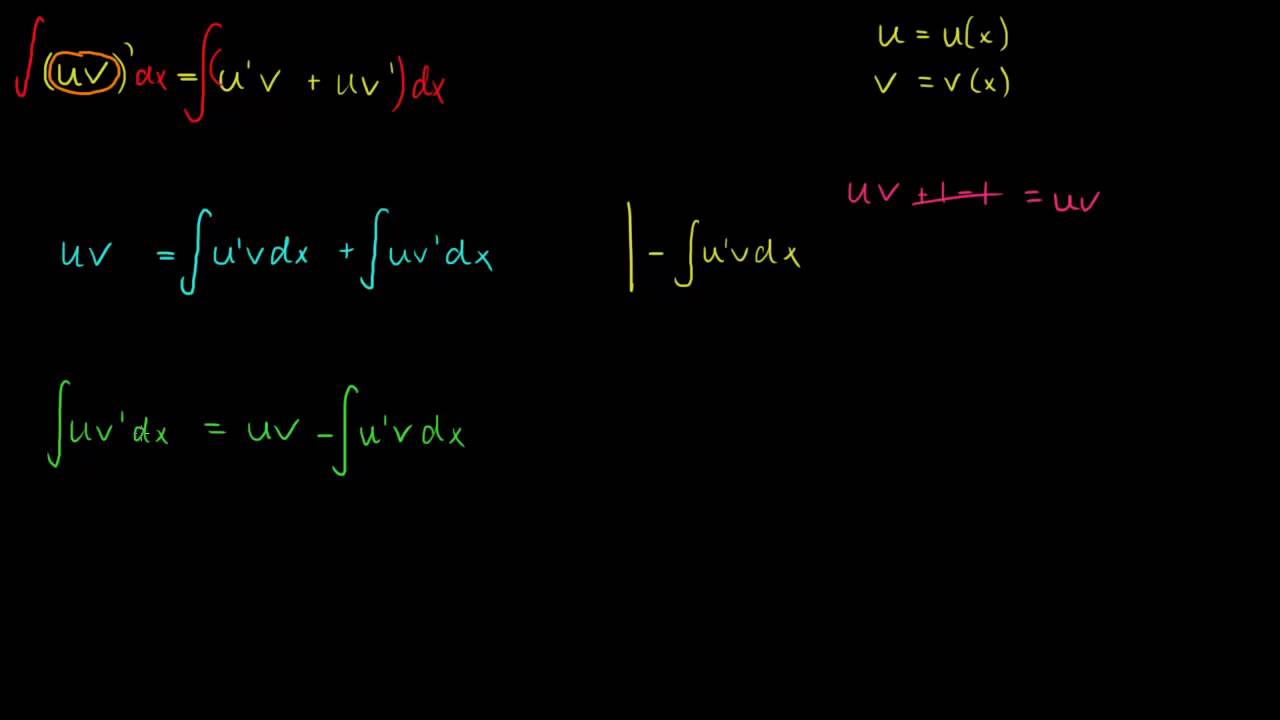 ∫(uv)'dx = ∫(u'v + uv')dx
u = u(x)
v = v(x)
uv +1-1 = uv
uv = ∫u'vdx + ∫uv'dx | - ∫u'vdx
∫uv'dx = uv - ∫u'vdx